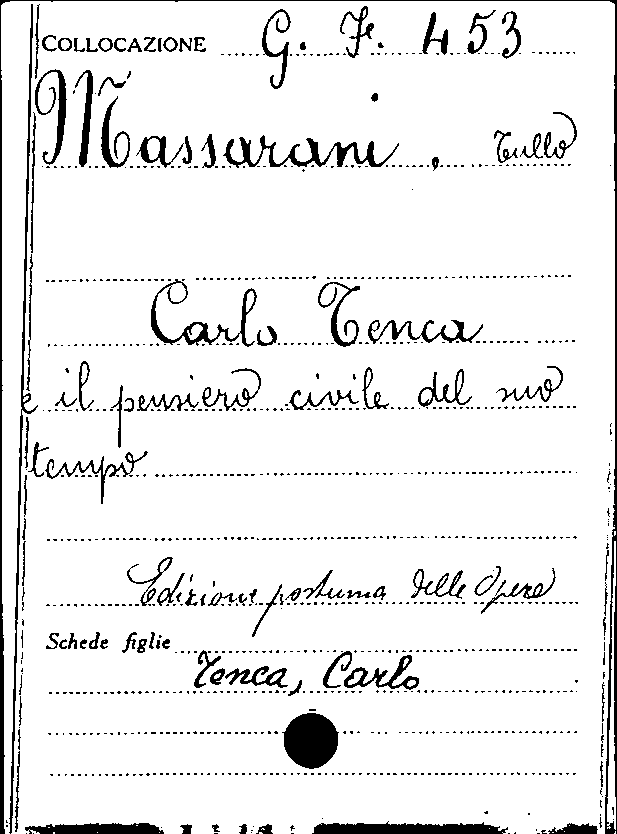 COLLOCAZIONE G. F. 453
Massarani, Tullo
Carlo Tenca
e il pensiero civile del suo
tempo
Edizione postuma delle Opere
Schede figlie
Tenca, Carlo